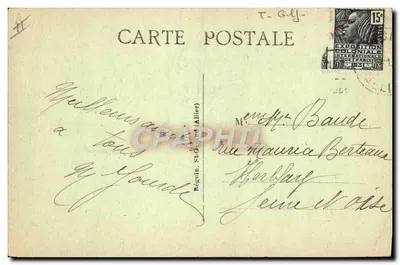 T- Golf-
CARTE POSTALE
15c
EXPOSITION
COLONIALE
INTERNATIONALE
PARIS 1931
Meilleurs
à
tous
M
Béguin, St- (Allier)
CPARHPI
M Baude
rue Maurice Berteaux
Herblay
Seine et Oise